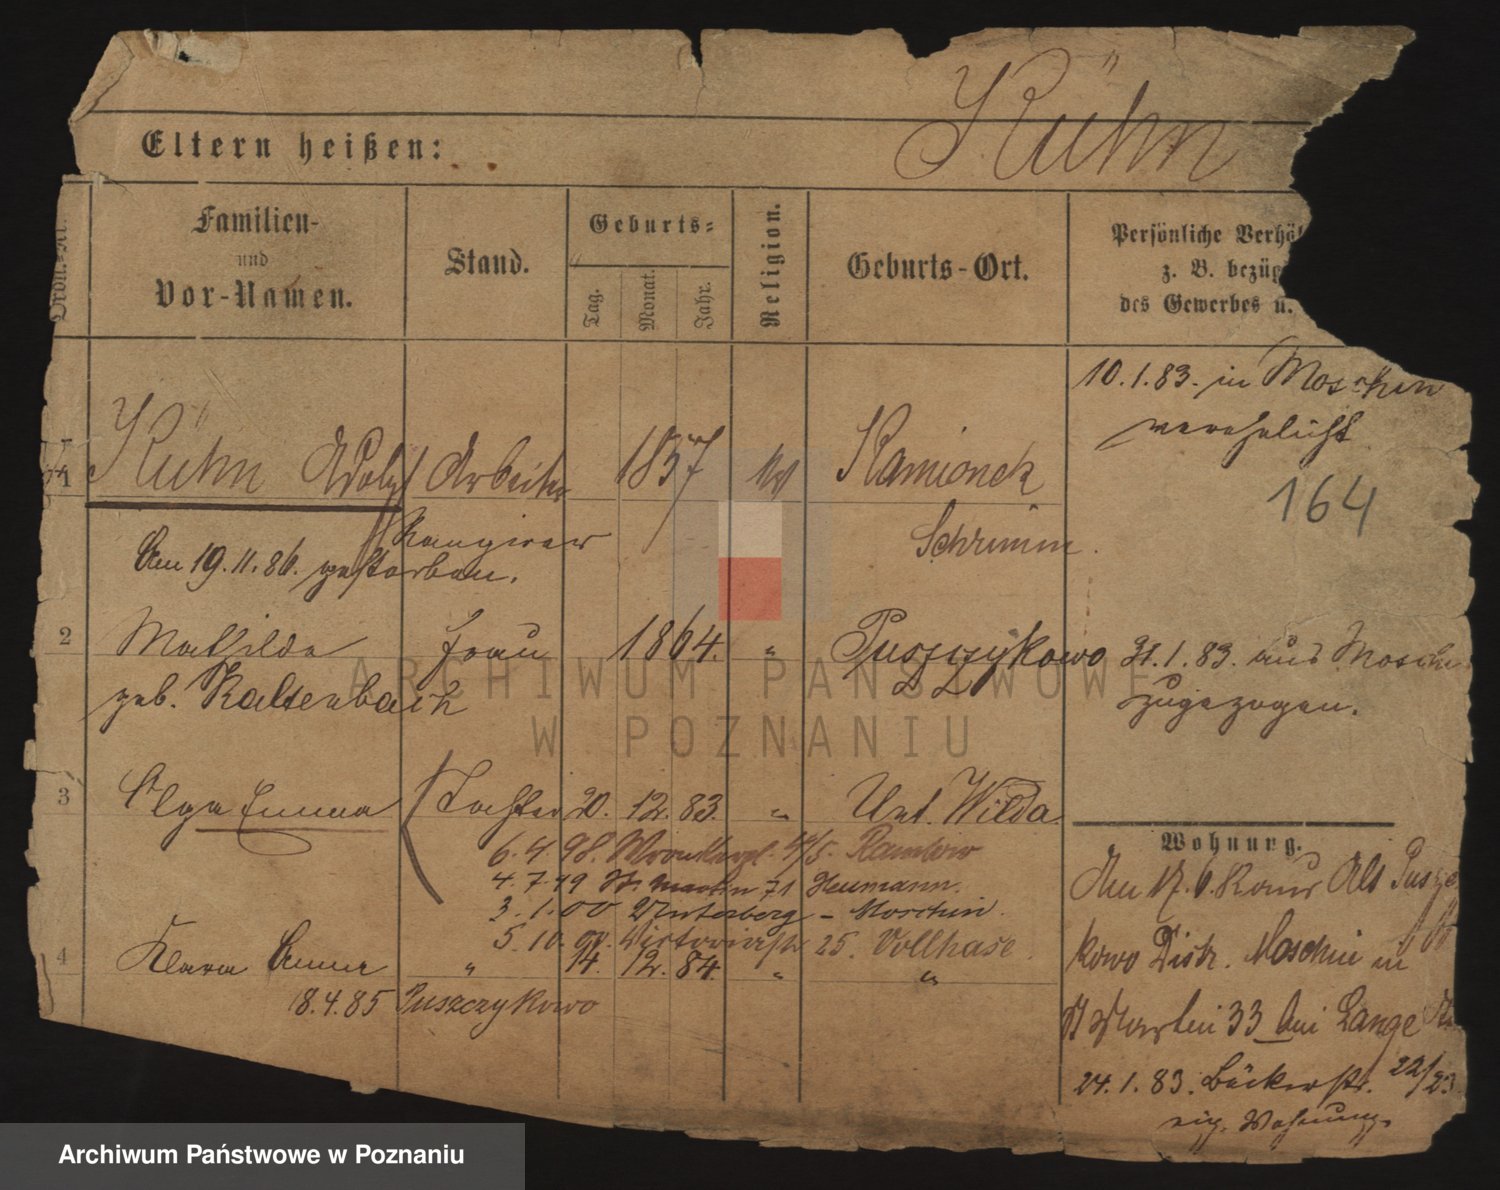 Kühn
Eltern heißen:
Ordn.-Nr.
Familien-
und
Vor-Namen.
Stand.
Geburts-
Tag.
Monat.
Jahr.
Religion.
Geburts-Ort.
Persönliche Verhäl
z. B. bezüg
des Gewerbes u.
1 Kühn Adolf Arbeiter 1857 Kamionek
10.1.83. in Moschin
verehelicht
164
Rangirer Schrimm.
Am 19.11.86. gestorben.
2 Mathilde Frau 1864. " Puszczykowo
geb. Kaltenbach
31.1.83. aus Moschin
zugezogen.
3 Olga Emma Tochter 20. 12. 83. " Unt. Wilda.
6.4.98.
4.7.99 St. Martin 71 Heumann.
3.1.00 - Moschin.
5.10. 25. Vollhase.
4 Klara Anna " 14. 12. 84. " "
18.4.85 Puszczykowo
Wohnung.
Am 17.6. Alt Puszy
kowo Distr. Moschin in
St Martin 33 bei Lange
24.1.83. Bäckerstr. 22/23
eig. Wohnung.
ARCHIWUM PAŃSTWOWE
W POZNANIU
Archiwum Państwowe w Poznaniu